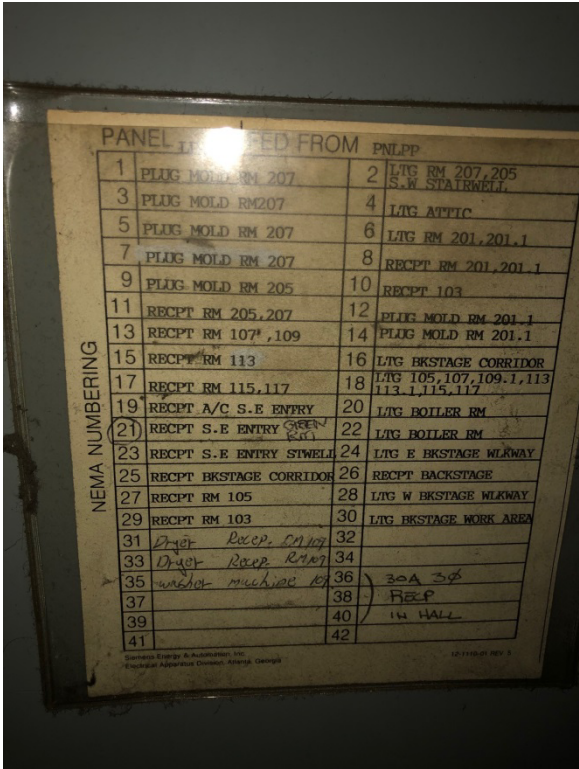 PANEL FED FROM PNLPP
NEMA NUMBERING
1 PLUG MOLD RM 207 2 LTG RM 207,205
S.W STAIRWELL
3 PLUG MOLD RM207 4 LTG ATTIC
5 PLUG MOLD RM 207 6 LTG RM 201,201.1
7 PLUG MOLD RM 207 8 RECPT RM 201,201.1
9 PLUG MOLD RM 205 10 RECPT 103
11 RECPT RM 205,207 12 PLUG MOLD RM 201.1
13 RECPT RM 107',109 14 PLUG MOLD RM 201.1
15 RECPT RM 113 16 LTG BKSTAGE CORRIDOR
17 RECPT RM 115,117 18 LTG 105,107,109.1,113
113.1,115,117
19 RECPT A/C S.E ENTRY 20 LTG BOILER RM
21 RECPT S.E ENTRY GREEN RM 22 LTG BOILER RM
23 RECPT S.E ENTRY STWELL 24 LTG E BKSTAGE WLKWAY
25 RECPT BKSTAGE CORRIDOR 26 RECPT BACKSTAGE
27 RECPT RM 105 28 LTG W BKSTAGE WLKWAY
29 RECPT RM 103 30 LTG BKSTAGE WORK AREA
31 Dryer Recep. RM109 32
33 Dryer Recep. RM109 34
35 washer machine 109 36 30A 3Ø
37 38 RECP
39 40 IN HALL
41 42
Siemens Energy & Automation, Inc.
Electrical Apparatus Division, Atlanta, Georgia